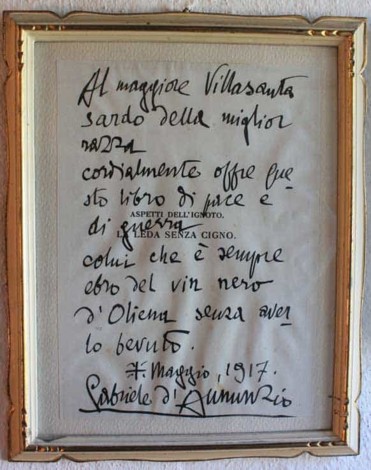 Al maggiore Villasanta
sardo della miglior
razza
cordialmente offre que=
sto libro di pace e
ASPETTI DELL'IGNOTO.
di guerra
LA LEDA SENZA CIGNO.
colui che è sempre
ebro del vin nero
d'Oliena senza aver=
lo bevuto.
Maggio, 1917.
Gabriele d'Annunzio